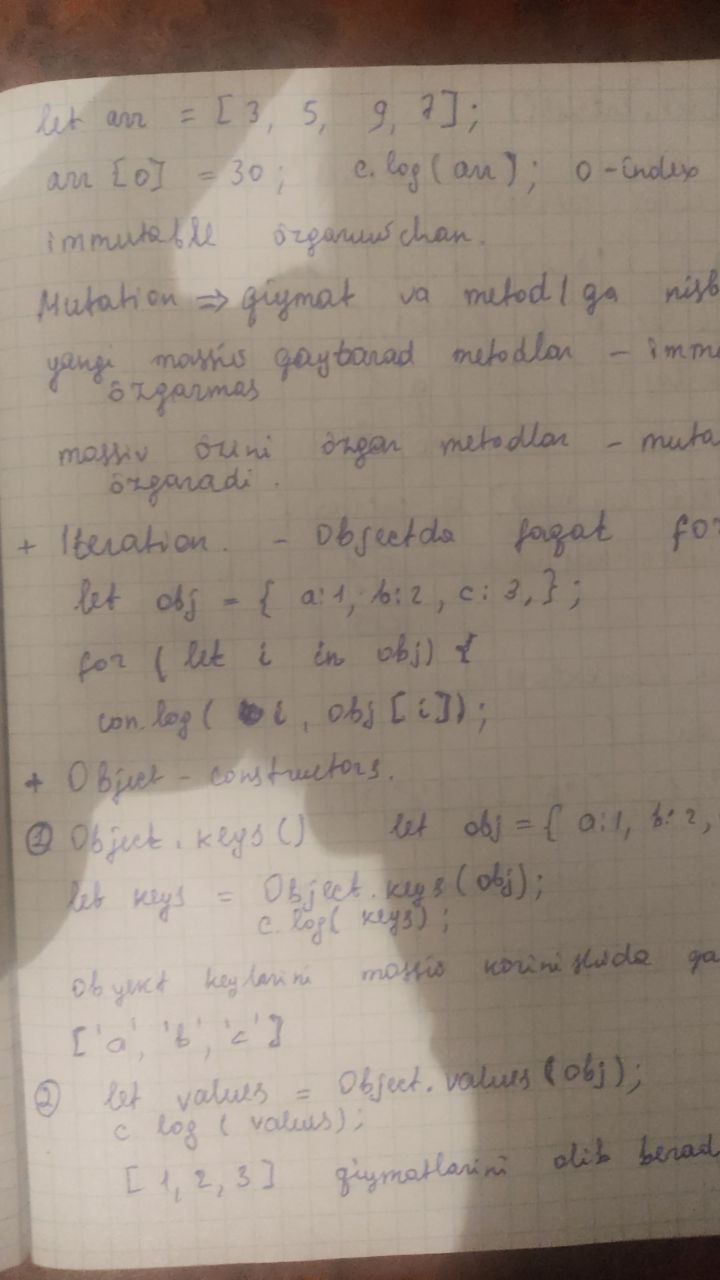 let arr = [3, 5, 9, 7];
arr [0] = 30; c.log(arr); 0-index
immutable õzgaruvchan.
Mutation => qiymat va metod/ga nisb
yangi massiv qaytarad metodlar - imm
õzgarmas
massiv õzini õzgar metodlar - muta
õzgaradi.
+ Iteration. - Objectda faqat for
let obj = { a:1, b:2, c: 3,};
for (let i in obj) {
con.log( i, obj [i]);
+ Object - constructors.
① Object.keys() let obj = { a:1, b:2,
let keys = Object.keys(obj);
c.log( keys);
obyekt keylarini massiv korinishida qa
['a', 'b', 'c']
② let values = Object.values(obj);
c log ( values);
[ 1, 2, 3 ] qiymatlarini olib berad